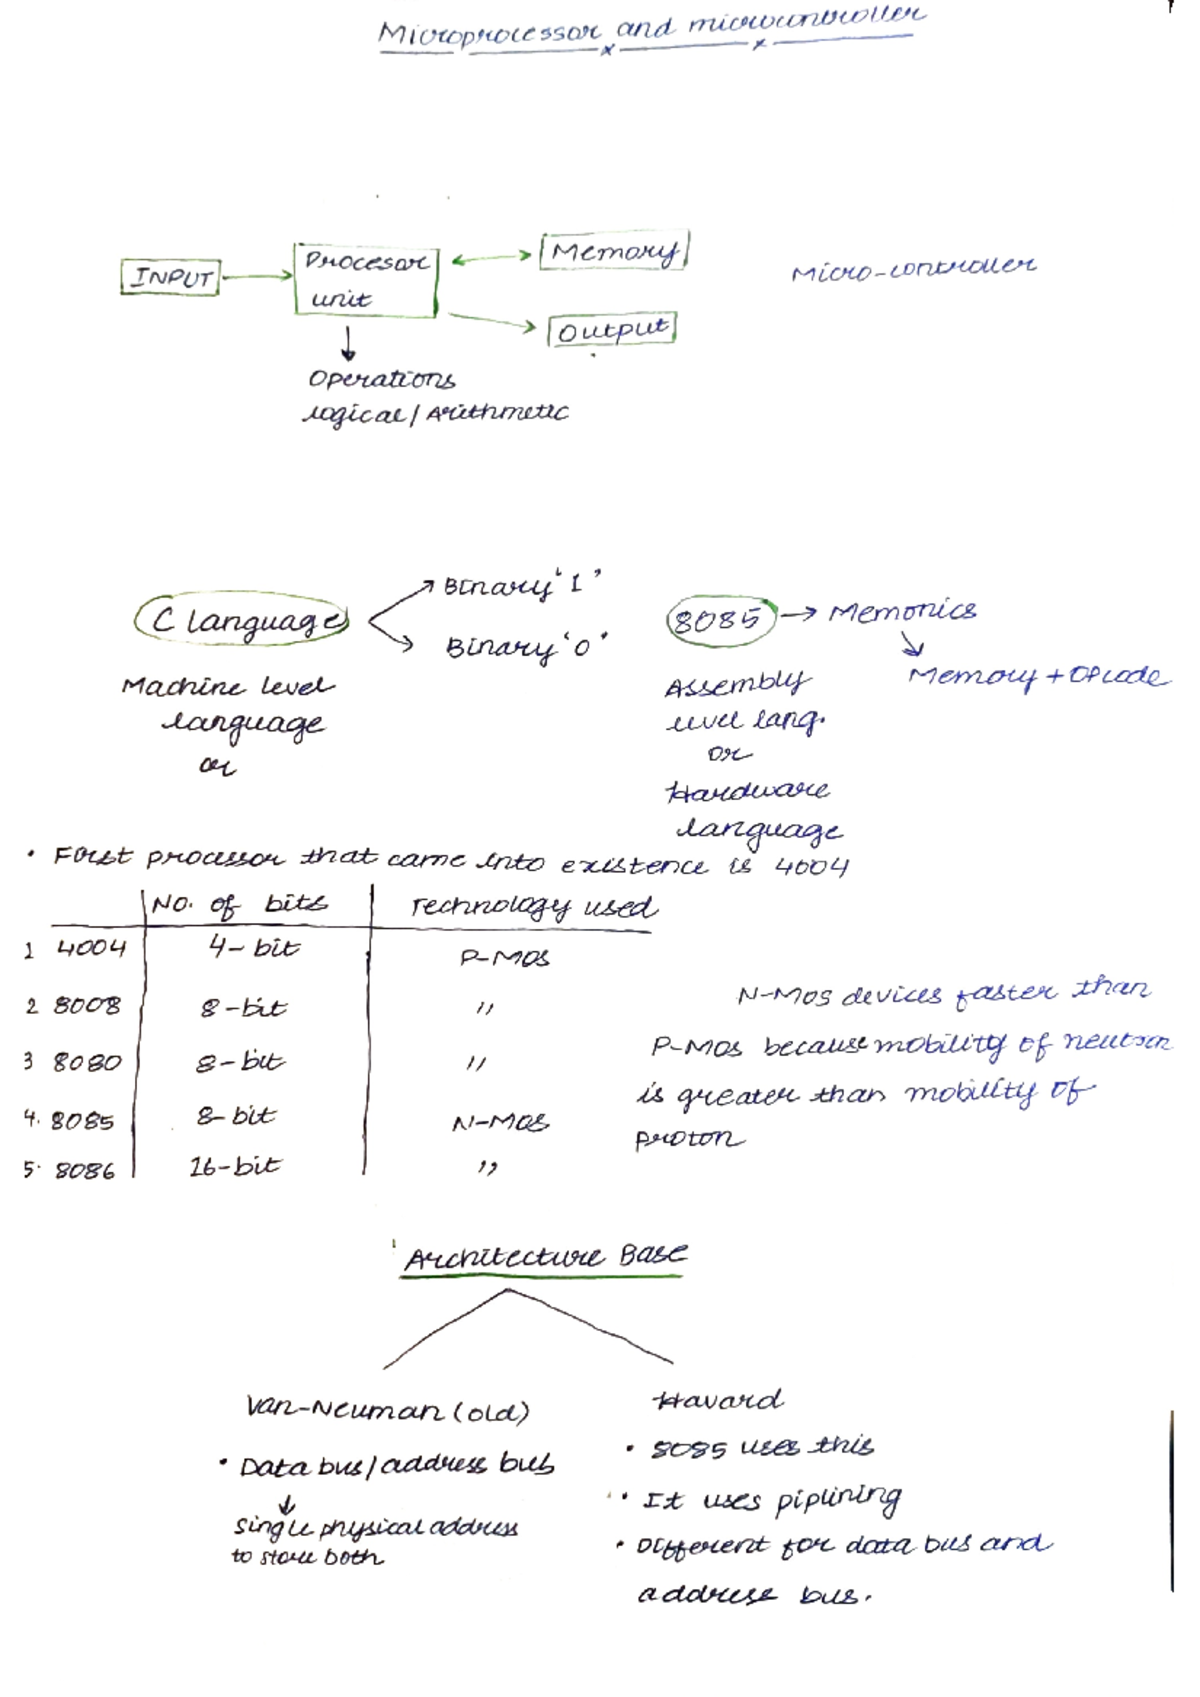 Microprocessor and microcontroller
INPUT
Procesor
unit
Memory
Output
Micro-controller
Operations
logical / Arithmetic
C language
Binary '1'
Binary '0'
Machine level
language
or
8085 → Memonics
Memory + OPcode
Assembly
level lang.
or
Hardware
language
• First processor that came into existence is 4004
No. of bits Technology used
1 4004 4-bit P-MOS
2 8008 8-bit "
3 8080 8-bit "
4. 8085 8-bit N-MOS
5. 8086 16-bit "
N-MOS devices faster than
P-MOS because mobility of neutron
is greater than mobility of
proton
Architecture Base
Van-Neuman (old)
• Data bus / address bus
↓
single physical address
to store both
Havard
• 8085 uses this
• It uses piplining
• Different for data bus and
address bus.